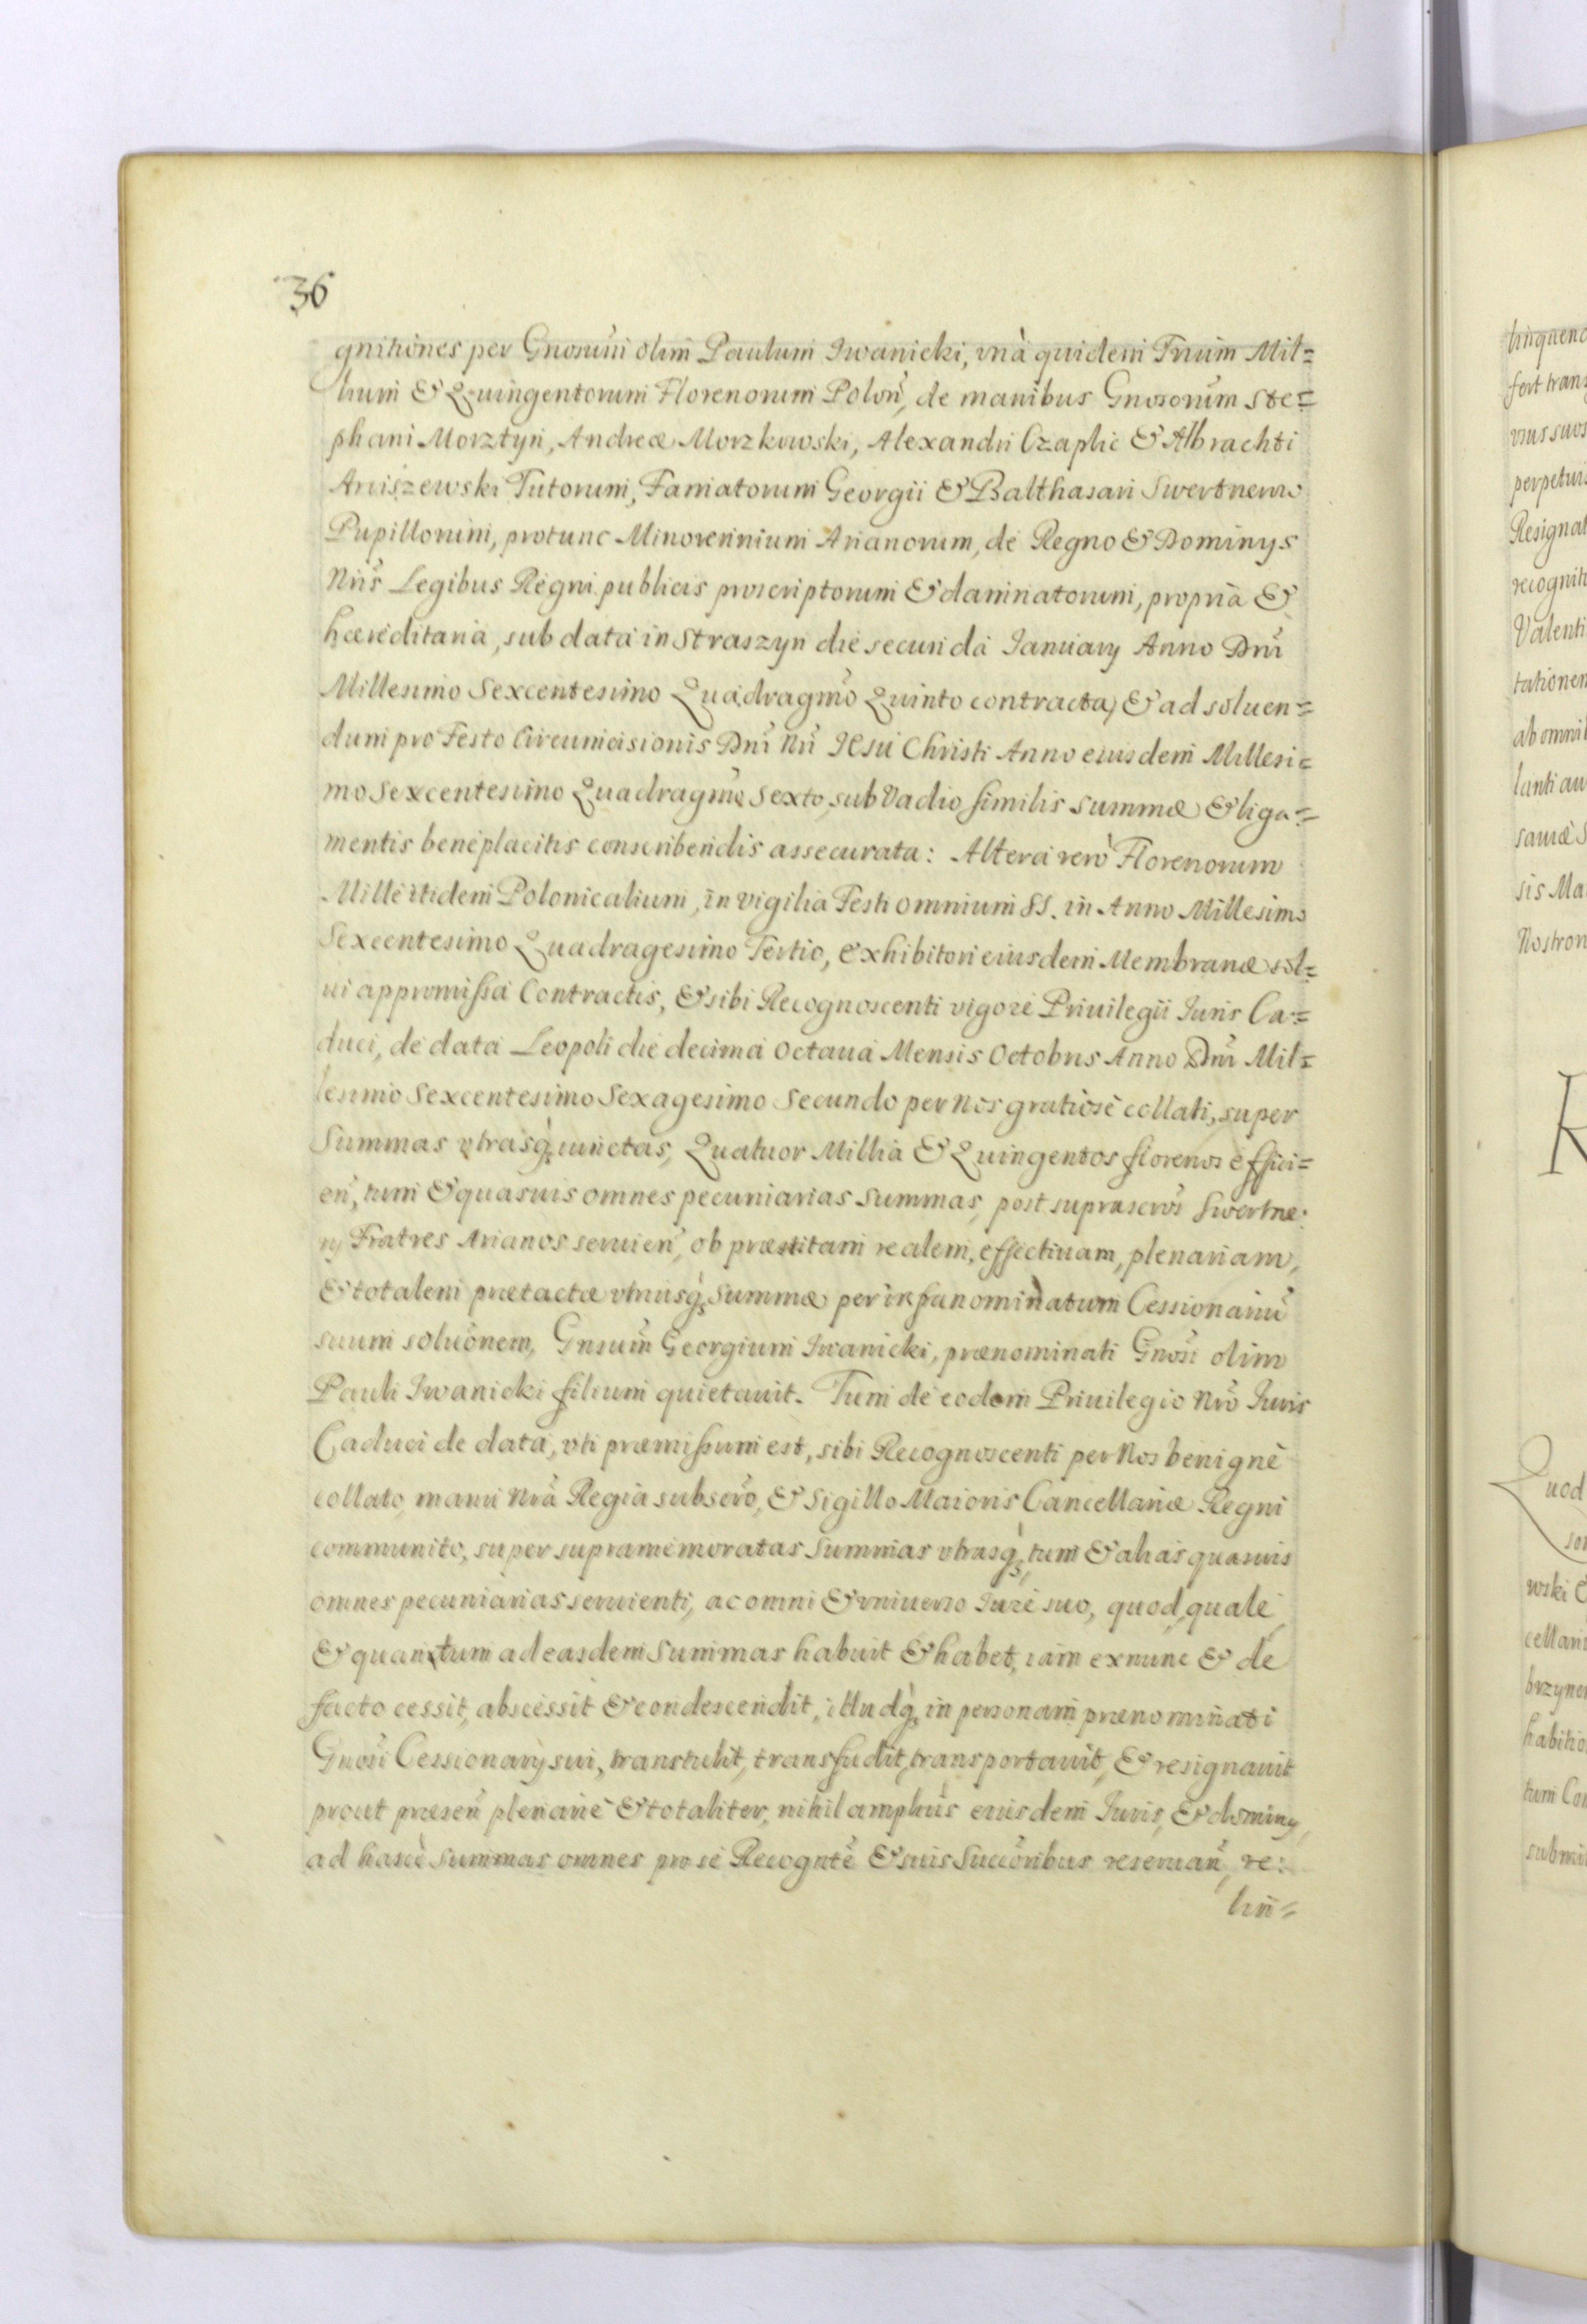 36
gnitiones per Gnosum̃ olim Paulum Iwanicki, vnà quidem Trium Mil=
lium & Quingentorum Florenorum Poloñ, de manibus Gnosorum̃ Ste=
phani Morztyn, Andreæ Morzkowski, Alexandri Czaplic & Albrachti
Arciszewski Tutorum, Famatorum Georgii & Balthasari Swertnerow
Pupillorum, protunc Minorennium Arianorum, de Regno & Dominys
Nris̃ Legibus Regni publicis proscriptorum & damnatorum, propria &
hæreditaria, sub data in Straszyn die secunda Ianuary Anno Dnĩ
Millesimo Sexcentesimo Quadragmõ Quinto contracta, & ad soluen=
dum pro Festo Circumcisionis Dnĩ Nrĩ IESu Christi Anno eiusdem Millesi=
mo Sexcentesimo Quadragmõ Sexto, sub Vadio similis summæ & liga=
mentis beneplacitis conscribendis assecurata: Altera verò Florenorum
Mille itidem Polonicalium, in vigilia Festi omnium SS. in Anno Millesimo
Sexcentesimo Quadragesimo Tertio, exhibitori eiusdem Membranæ sol=
ui appromissa Contractis, & sibi Recognoscenti vigore Priuilegii Iuris Ca=
duci, de data Leopoli die decima octaua Mensis Octobris Anno Dnĩ Mil=
lesimo Sexcentesimo Sexagesimo Secundo per Nos gratiosè collati, super
Summas vtrasq̀ȝ iunctas, Quatuor Millia & Quingentos florenos effici=
eñ, tum & quasuis omnes pecuniarias summas, post suprascros̃ Swertne:
ry Fratres Arianos seruieñ, ob præstitam realem, effectiuam, plenariam,
& totalem prætactæ vtriusq̀ȝ Summæ per infranominatum Cessionariũ
suum soluõnem, Gnsum̃ Georgium Iwanicki, prænominati Gnosĩ olim
Pauli Iwanicki filium quietauit. Tum de eodem Priuilegio Nrõ Iuris
Caduci de data, vti præmissum est, sibi Recognoscenti per Nos benignè
collato, manu Nrã Regia subscrõ, & Sigillo Maioris Cancellariæ Regni
communito, super supramemoratas Summas vtrasq̀ȝ, tum & alias quasuis
omnes pecuniarias seruienti, ac omni & vniuerso Iure suo, quod, quale,
& quantum ad easdem Summas habuit & habet, iam exnunc & de
facto cessit, abscessit & condescendit, illudq̀ȝ in personam prænominati
Gnosĩ Cessionary sui, transtulit, transfudit, transportauit, & resignauit
prout præseñ plenariè & totaliter, nihil ampliùs eiusdem Iuris, & dominy,
ad hasce Summas omnes pro se Recogntẽ & suis Succõribus reseruañ, re:
lin=